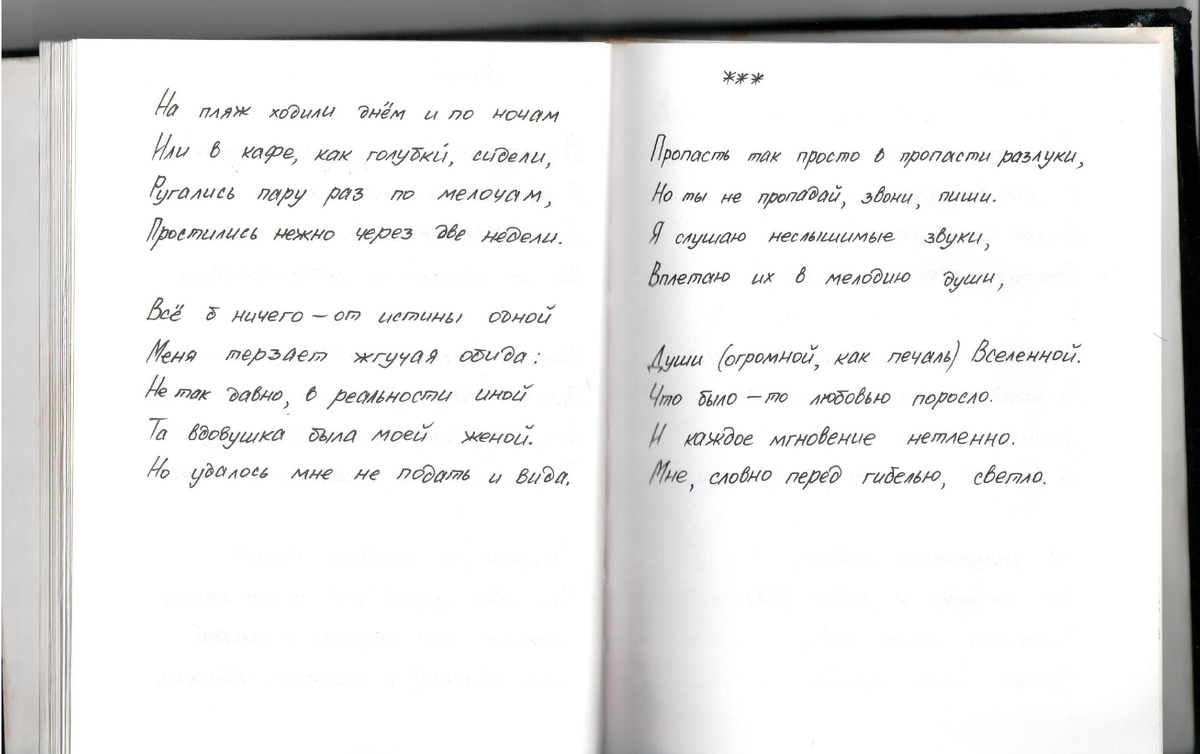 На пляж ходили днём и по ночам
Или в кафе, как голубки́, сидели,
Ругались пару раз по мелочам,
Простились нежно через две недели.
Всё б ничего – от истины одной
Меня терзает жгучая обида:
Не так давно, в реальности иной
Та вдовушка была моей женой.
Но удалось мне не подать и вида.
***
Пропасть так просто в пропасти разлуки,
Но ты не пропадай, звони, пиши.
Я слушаю неслышимые звуки,
Вплетаю их в мелодию души,
Души (огромной, как печаль) Вселенной.
Что было – то любовью поросло.
И каждое мгновение нетленно.
Мне, словно перед гибелью, светло.